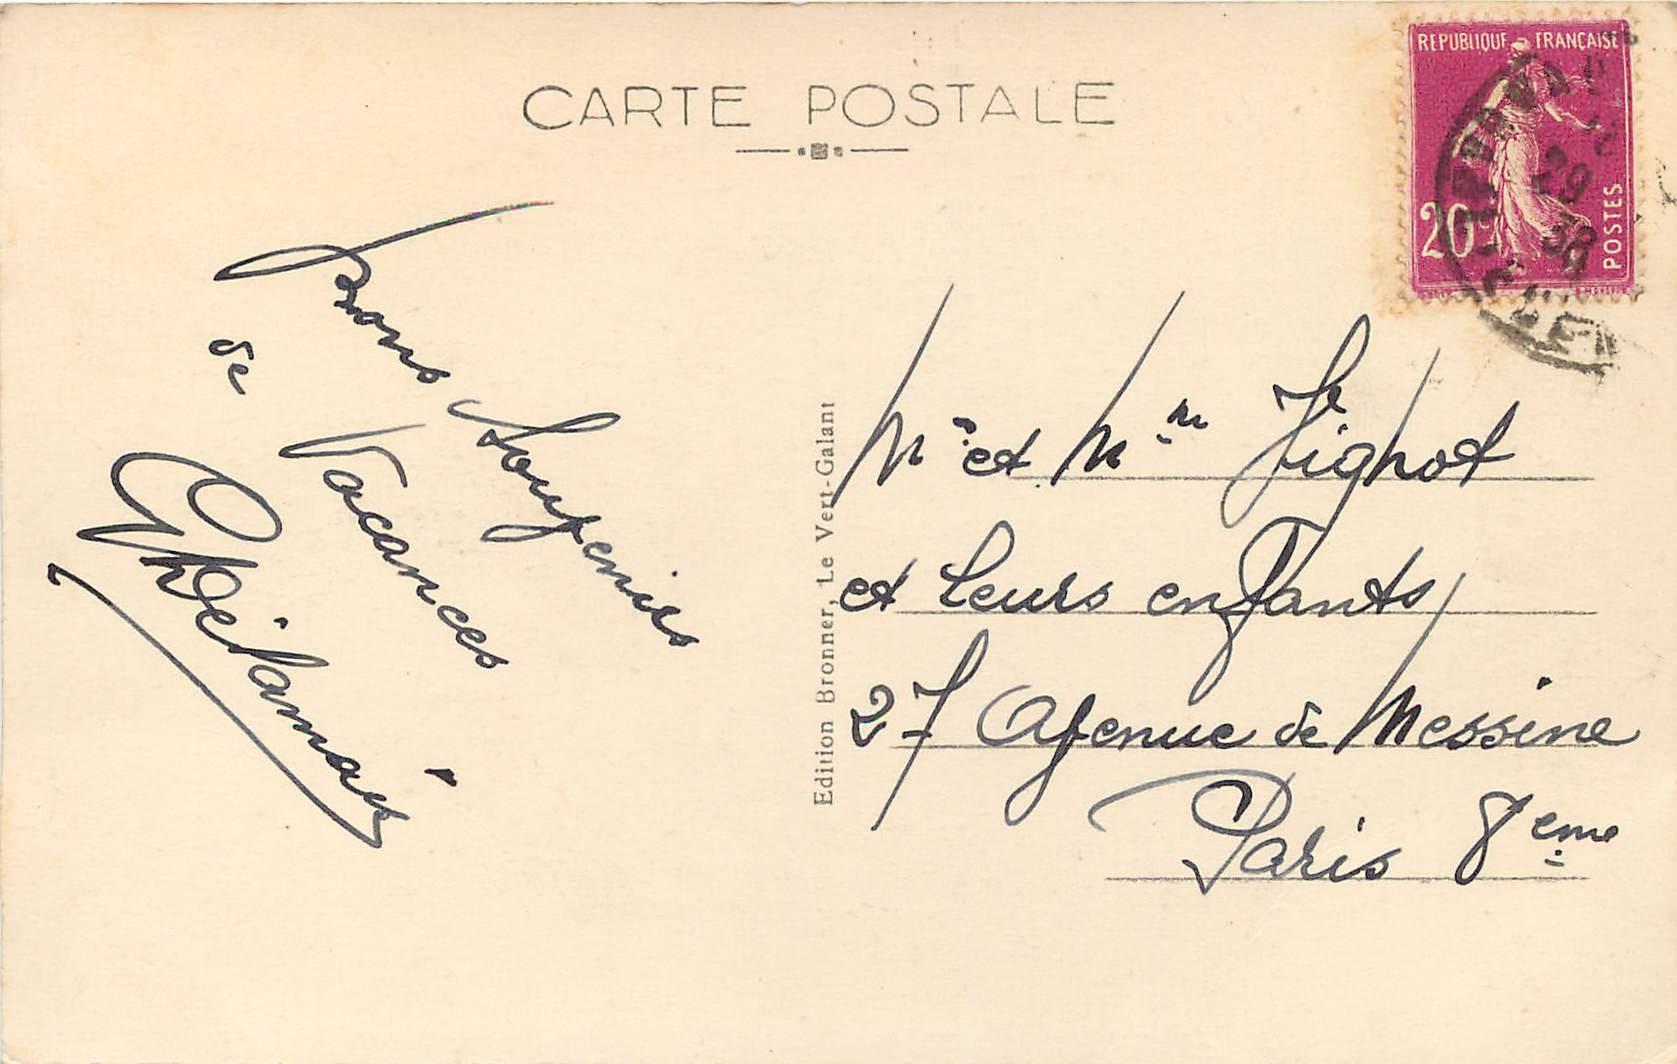 CARTE POSTALE
REPUBLIQUE FRANÇAISE
20c
POSTES
29
38
Bons Souvenirs
de Vacances
Edition Bronner, Le Vert-Galant
Mr et Mme Fignot
et leurs enfants
27 Avenue de Messine
Paris 8eme